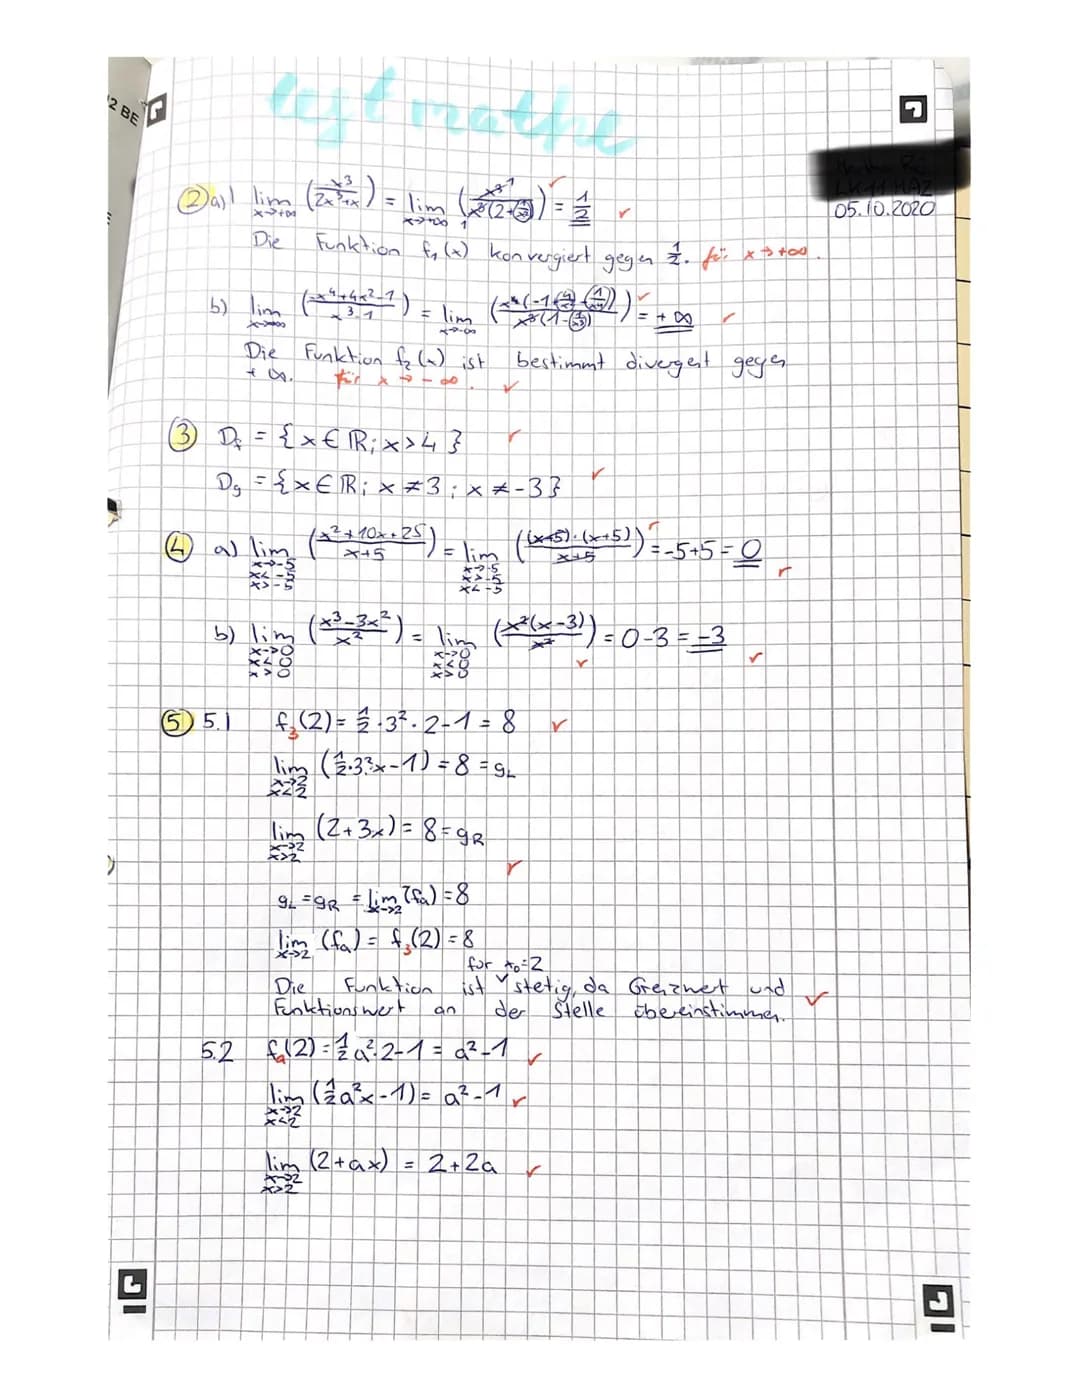 test mathe
2 BE
05.10.2020
② a) lim x→+∞ (x³/(2x³+x)) = lim x→+∞ (x³ 1/(x³(2+1/x²)) 1) = 1/2
Die Funktion f₁(x) konvergiert gegen 1/2. für x→+∞.
b) lim x→-∞ ((-x⁴+4x²-1)/(x³-1)) = lim x→-∞ (x⁴(-1+4/x²-1/x⁴)/(x³(1-1/x³))) = +∞
Die Funktion f₂(x) ist bestimmt divergent gegen
+∞. für x→-∞.
③ Df = {x∈ℝ; x>4}
Dg = {x∈ℝ; x≠3; x≠-3}
④ a) lim x→-5 x<-5 x>-5 ((x²+10x+25)/(x+5)) = lim x→-5 x>-5 x<-5 (((x+5)·(x+5))/(x+5)) = -5+5 = 0
b) lim x→0 x<0 x>0 ((x³-3x²)/x²) = lim x→0 x<0 x>0 (x²(x-3)/x²) = 0-3 = -3
⑤ 5.1 f₃(2) = 1/2·3²·2-1 = 8
lim x→2 x<2 (1/2·3²·x-1) = 8 = gL
lim x→2 x>2 (2+3x) = 8 = gR
gL = gR = lim x→2 (fa) = 8
lim x→2 (fa) = f₃(2) = 8
für x₀=2
Die Funktion ist ∨ stetig, da Grenzwert und
Funktionswert an der Stelle übereinstimmen.
5.2 fa(2) = 1/2 a²·2-1 = a²-1
lim x→2 x<2 (1/2a²x-1) = a²-1
lim x→2 x>2 (2+ax) = 2+2a